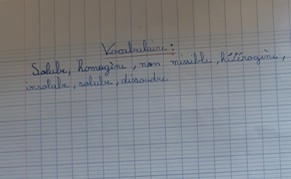 Vocabulaire :
Soluble, homogène, non missible, hétérogène,
insoluble, soluble, dissoudre